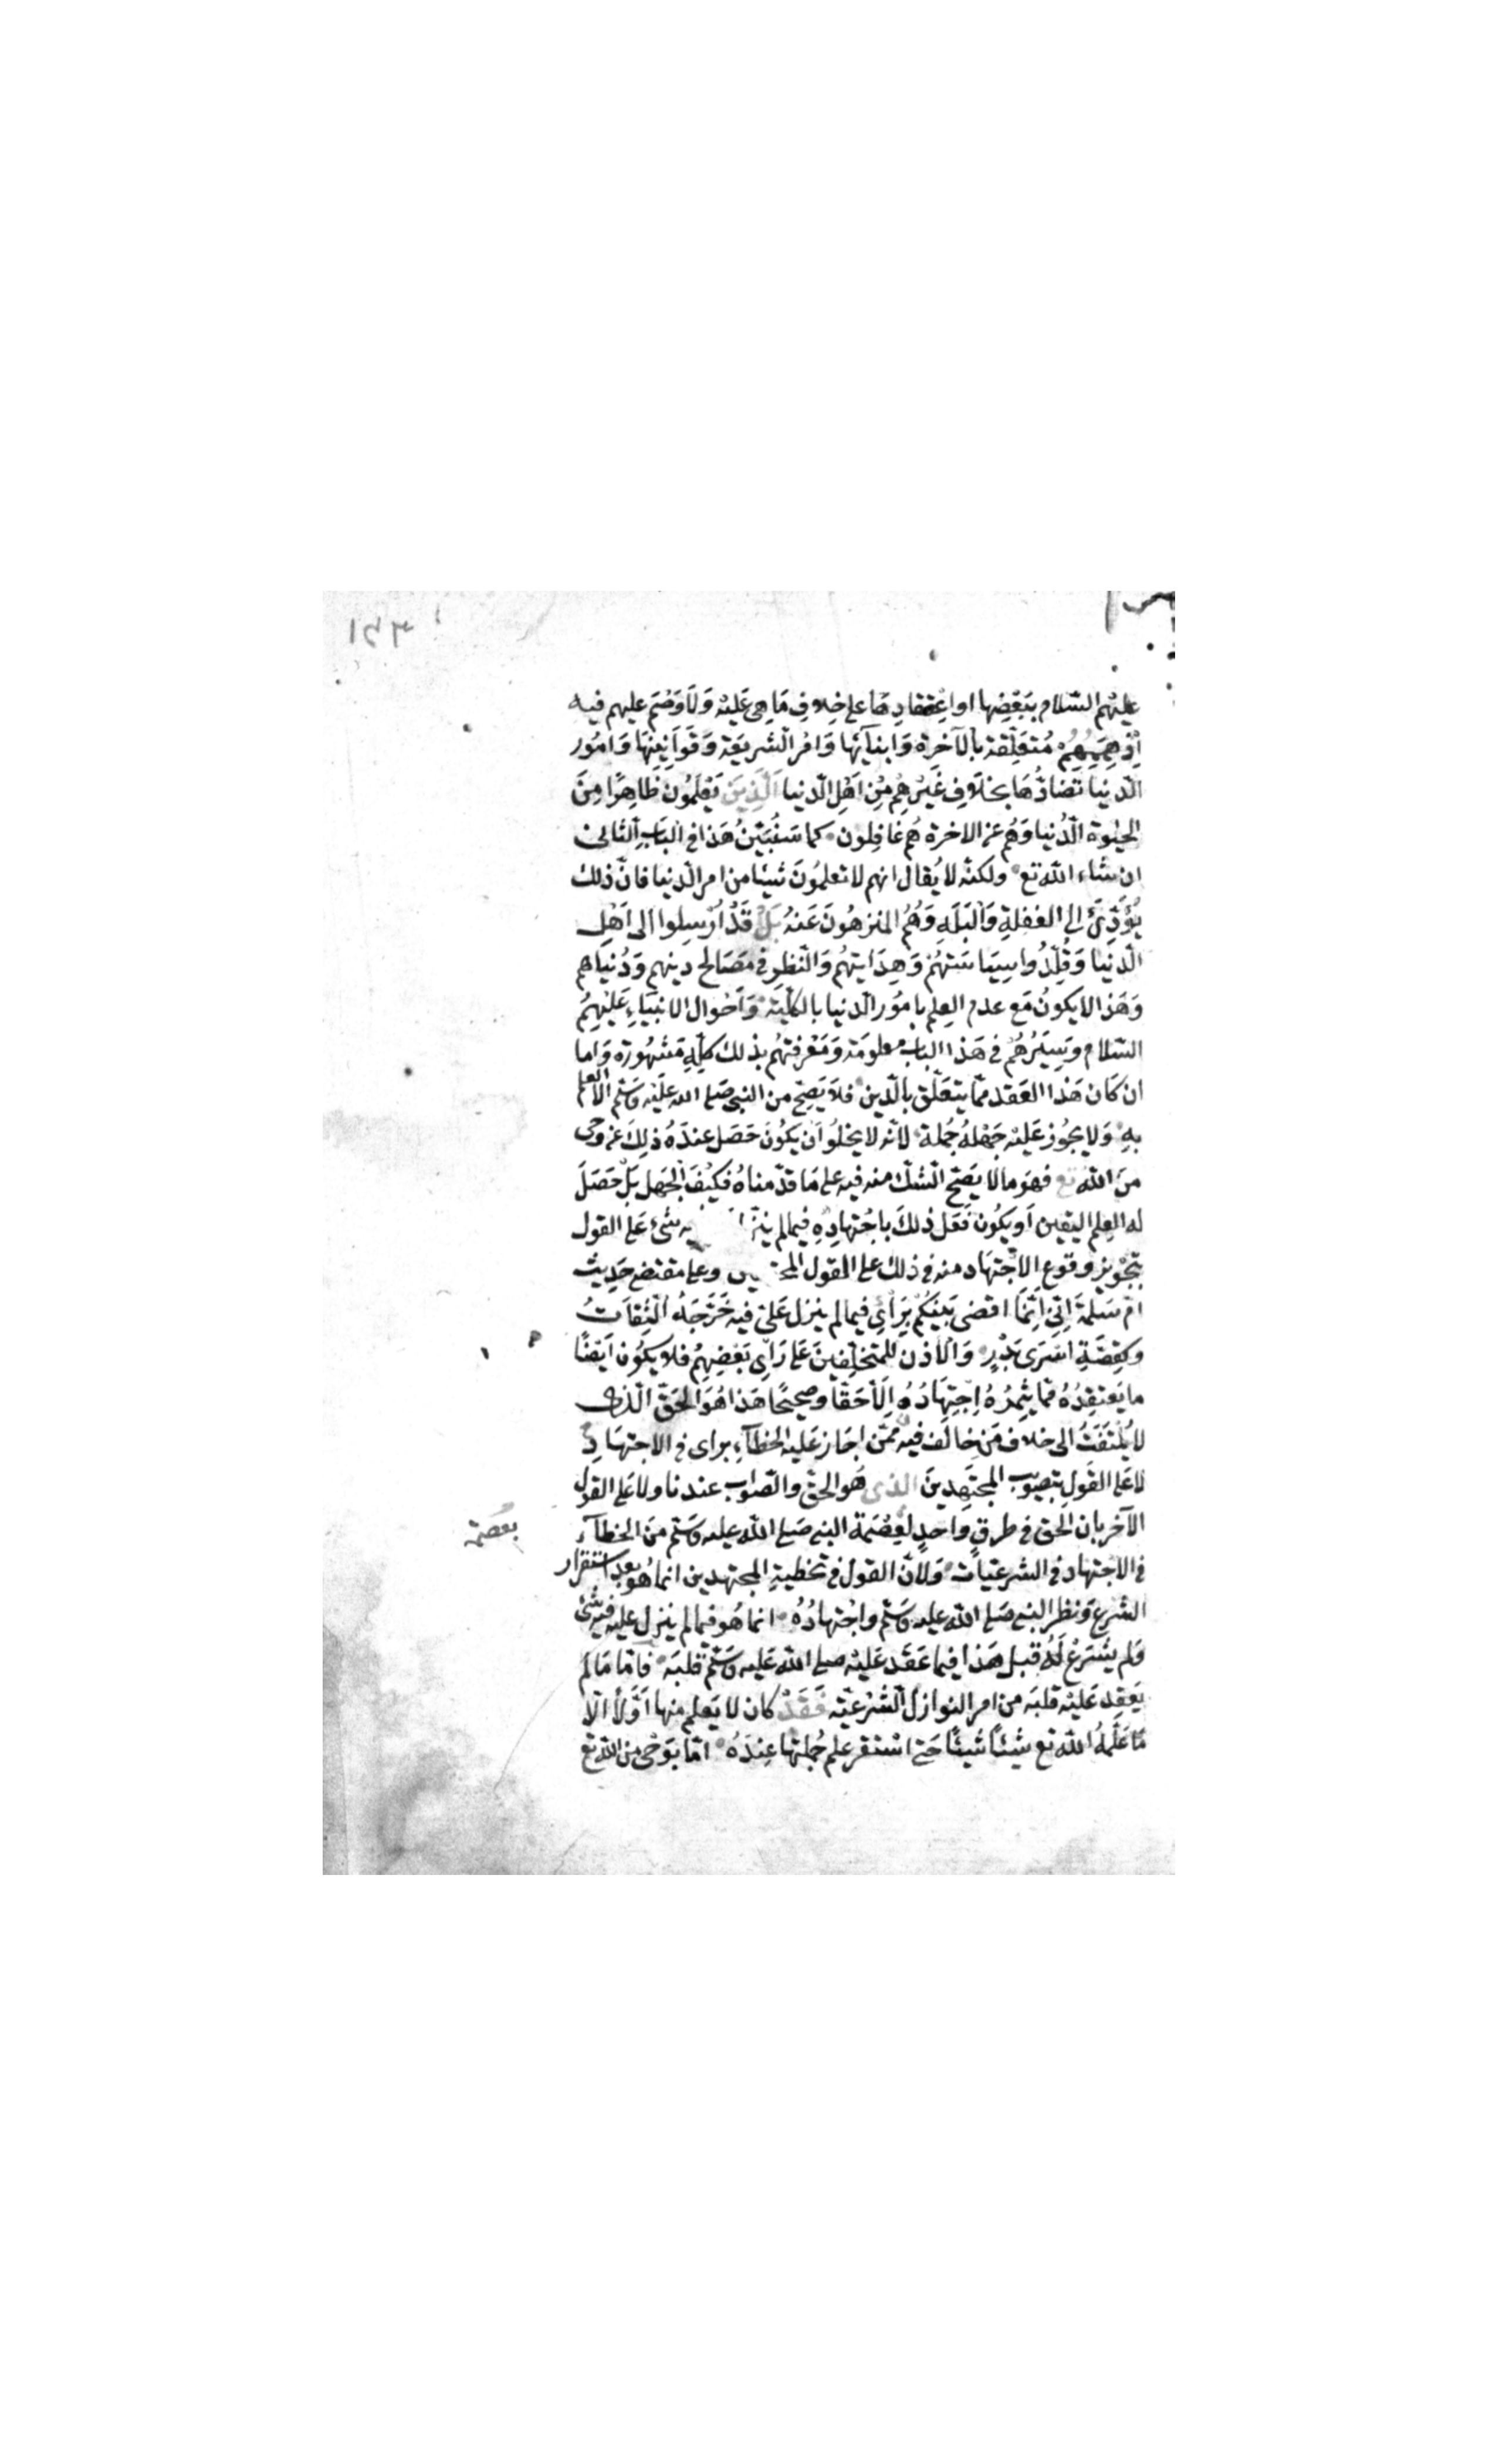 عليهم السّلام ببعضها او اعتقادِها على خِلافِ مَا هى عَليْه وَلَا وَصْمَ عليهم فيه
اِذْ هِمَمُهُمْ مُتعَلِّقة بالآخرة وَانبآئها وَامْر الشريعَة وَقوَانِينهَا وَامُور
الدّنيا تضادّهَا بخلَافِ غَيْرهِمْ مِنْ اَهْلِ الدّنيا الَّذِينَ يَعْلمُون ظَاهِرًا مِنَ
الحيٰوة الدُّنيا وَهُمْ عن الاخرة هُم غافِلون كما سَنُبيّنُ هَذا فى البَابِ الثانى
ان شاء الله تع ولكنّه لا يُقال انهم لا تعلمُونَ شيئا من امر الدّنيا فانّ ذلك
يُؤَدّىَ الى الغفلةِ وَالبَلَهِ وَهُمُ المنزهُونَ عَنهُ بَلْ قَدْ اُرسِلوا الى اَهْلِ
الدّنيَا وَقُلِّدُوا سِيَاسَتهُمْ وَهِدَايتهُم وَالنّظر فى مَصَالح دينهم وَدُنيَاهم
وَهَذا لا يكونُ مَع عدم العِلم بامُور الدّنيا بالكلّية وَاَحْوال الانبيَاءِ عَليْهِمُ
السّلام وسِيَرُهُمْ فى هَذا الباب معلومَة وَمَعْرفتهُم بذلك كلِّهِ مَشهُورَة وَاما
ان كَان هَذا العَقد ممّا يتعَلّق بالدّين فلَا يَصِحّ من النبى صَلى الله عليْه وَسَلم الّا العلم
بهِ وَلا يجُوز عَليْه جَهْلهُ جُملة لانّه لا يخلُو اَنْ يَكونَ حَصَل عِندَهُ ذلِكَ عَن وحى
منَ الله تع فهوَ ما لا يَصِحّ الشكّ منه فيه على مَا قدّمناهُ فكَيْفَ الجَهل بَلْ حَصَلَ
له العِلم اليقين اَو يكُون فَعَل ذلكَ باجْتِهادِهِ فيما لم ينز شئ عَلى القول
بتجْويز وقوع الاجتهَاد منه فى ذلك على القول وعلى مقتضى حَدِيث
امّ سَلمة اِنّى اِنّمَا اقضى بَينَكُمْ بِرَاْيِى فيما لم ينزل عَلىّ فيه خَرّجَهُ الثِّقَاتُ
وكقِصَّةِ اسْرَى بَدْرٍ وَالاذن للمتخلِّفِينَ عَلى رَأى بَعْضِهِمْ فلا يكوُن اَيْضًا
ما يَعتقِدُهُ مّما يثمِرُهُ اِجْتِهَادُهُ اِلّا حَقّا وصَحِيحًا هَذا هُوَ الحَقّ الّذى
لا يُلْتَفَتُ الى خلاف مَن خالَف فيه مّمَن اجَاز عَليه الخطآءِ براى فى الاجتهَادِ
لا عَلى القَول بتصْويب المجتَهِدينَ الذى هُو الحَقّ والصّواب عندنا ولا عَلى القول
الآخر بان الحق فى طرقٍ وَاحدٍ لِعِصْمَة النبى صَلى الله عليه وَسَلم منَ الخطآءِ
بعصمة
فى الاجتهاد فى الشرعيّات وَلِاَنّ القول فى تخطيةِ المجتهدين انما هُو بعد استقرار
الشرع وَنظر النبى صَلى الله عليه وَسَلم وَاجْتهادُهُ انما هُو فيما لم ينزل عليه فيه شئ
وَلم يشْرَعْ لَهُ قبل هَذا فيما عَقَد عَليْه صلى الله عَليه وَسَلم قلبَه فاَمّا مَا لم
يَعقد عَليْه قلبَه من امر النوازل الشرْعيّة فَقَدْ كان لا يَعلم منها اَوَّلاً الّا
مَا عَلّمهُ الله تع شيئًا شيئًا حَتى استقر علم جُملتها عِندَهُ امّا بوَحْى من الله تع